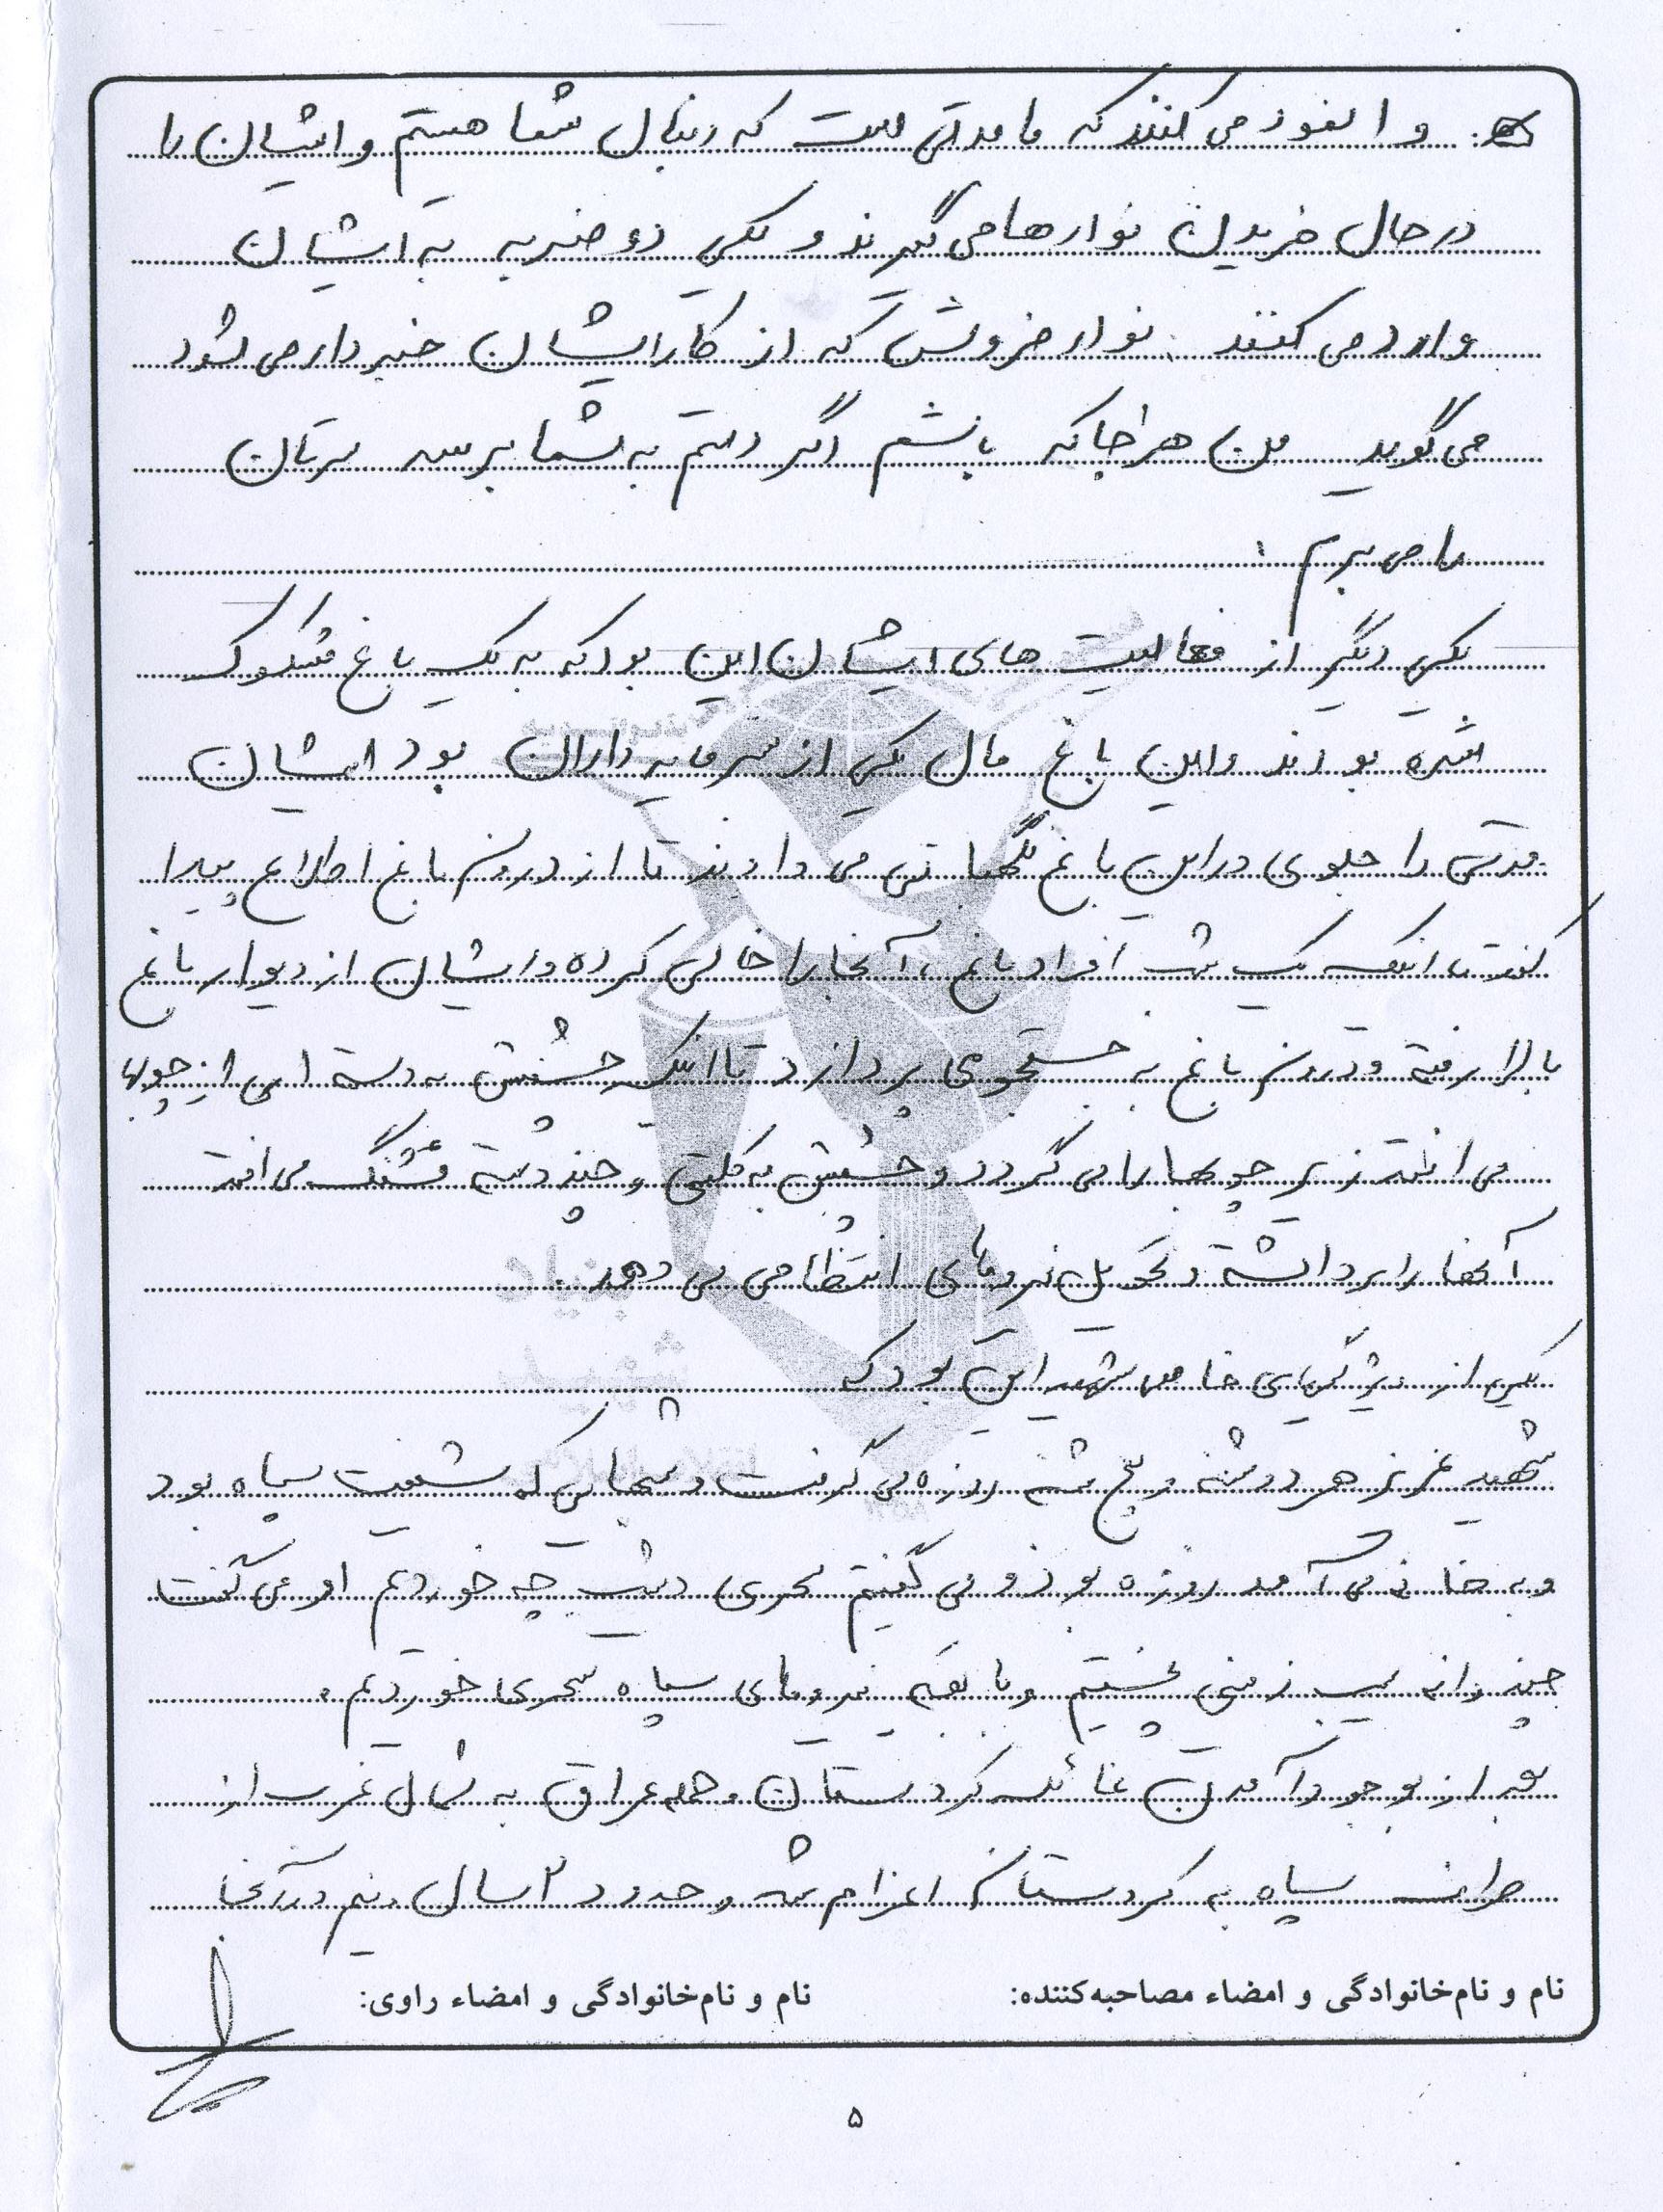 و انمود می کنند که ما مدتی است که دنبال شما هستیم و ایشان را
در حال خریدن نوارها می گیرند و یکی دو ضربه به ایشان
وارد می کنند . نوار فروش که از کار ایشان خبردار می شود
می گوید من هر جا که باشم اگر دستم به شما برسد سرتان
را می برم .
یکی دیگر از فعالیت های ایشان این بود که به یک باغ مشکوک
شده بودند و این باغ مال یکی از سرمایه داران بود ایشان
مدتی را جلوی در این باغ نگهبانی می دادند تا از درون باغ اطلاع پیدا
کنند تا اینکه یک شب افراد باغ ، آنجا را خالی کرده و ایشان از دیوار باغ
بالا رفته و درون باغ به جستجو می پردازد تا اینکه چشمش به دسته ای از چوبها
می افتد زیر چوبها را می گردد و چشمش به کلتی و چند دسته فشنگ می افتد
آنها را برداشته و تحویل نیروهای انتظامی می دهد .
یکی از ویژگیهای خاص شهید این بود که
شهید عزیز هر دوشنبه و پنج شنبه روزه می گرفت و شبهایی که شیفت سپاه بود
و به خانه می آمد روزه بود و می گفتیم سحری دیشب چه خوردیم او می گفت
چند دانه سیب زمینی پختیم و با بقیه نیروهای سپاه سحری خوردیم .
بعد از بوجود آمدن غائله کردستان و حمله عراق به شمال غرب از
طرف سپاه به کردستان اعزام شد و حدود ۲ سال و نیم در آنجا
نام و نام‌خانوادگی و امضاء مصاحبه‌کننده: نام و نام‌خانوادگی و امضاء راوی:
۵